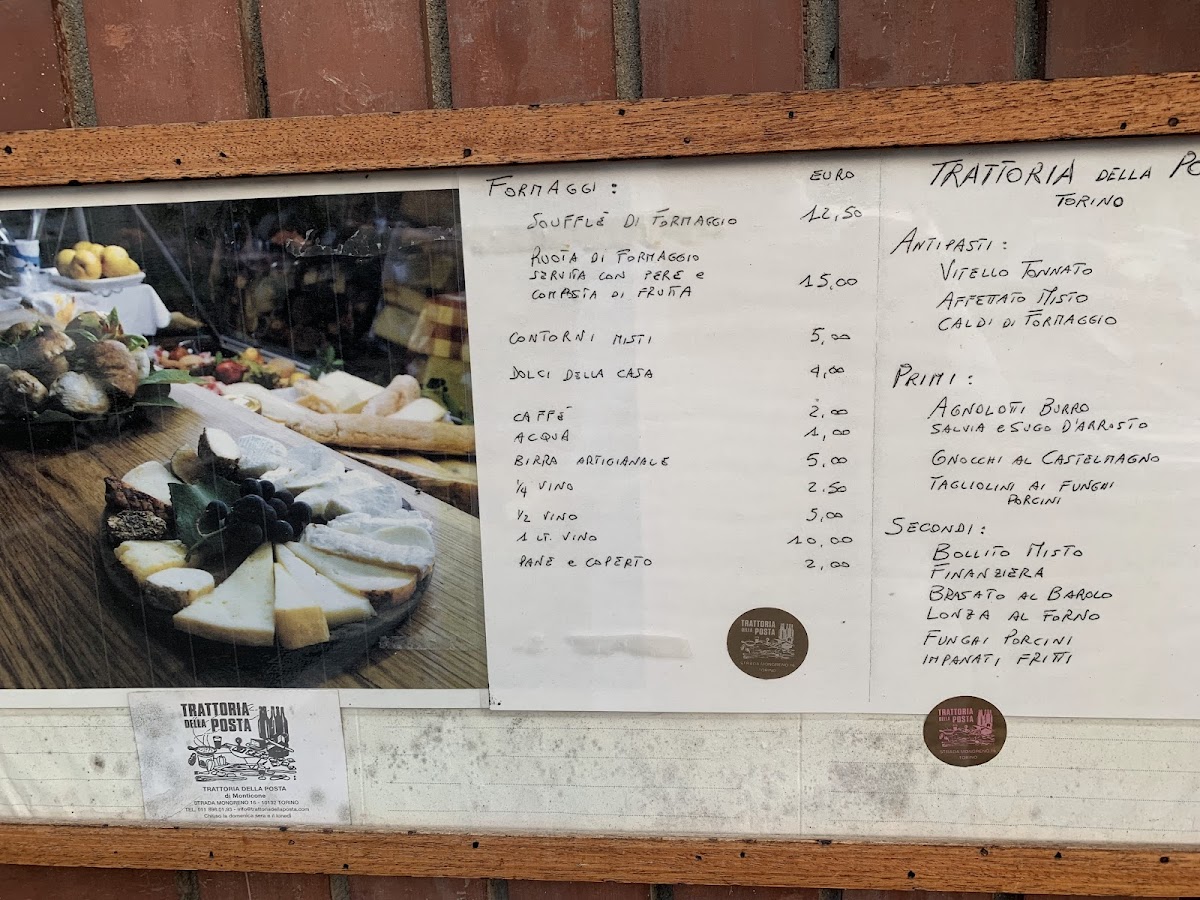 FORMAGGI : EURO
SOUFFLÈ DI FORMAGGIO 12,50
RUOTA DI FORMAGGIO
SERVITA CON PERE e
COMPOSTA DI FRUTTA 15,00
CONTORNI MISTI 5,00
DOLCI DELLA CASA 4,00
CAFFÈ 2,00
ACQUA 1,00
BIRRA ARTIGIANALE 5,00
1/4 VINO 2,50
1/2 VINO 5,00
1 LT. VINO 10,00
PANE e COPERTO 2,00
TRATTORIA DELLA PO
TORINO
ANTIPASTI :
VITELLO TONNATO
AFFETTATO MISTO
CALDI DI FORMAGGIO
PRIMI :
AGNOLOTTI BURRO
SALVIA e SUGO D'ARROSTO
GNOCCHI AL CASTELMAGNO
TAGLIOLINI AI FUNGHI
PORCINI
SECONDI :
BOLLITO MISTO
FINANZIERA
BRASATO AL BAROLO
LONZA AL FORNO
FUNGHI PORCINI
IMPANATI, FRITTI
TRATTORIA
DELLA POSTA
STRADA MONGRENO 16
TORINO
TRATTORIA
DELLA POSTA
STRADA MONGRENO 16
TORINO
TRATTORIA
DELLA POSTA
TRATTORIA DELLA POSTA
di Monticone
STRADA MONGRENO 16 - 10132 TORINO
TEL. 011 898.01.93 - info@trattoriadellaposta.com
Chiuso la domenica sera e il lunedì